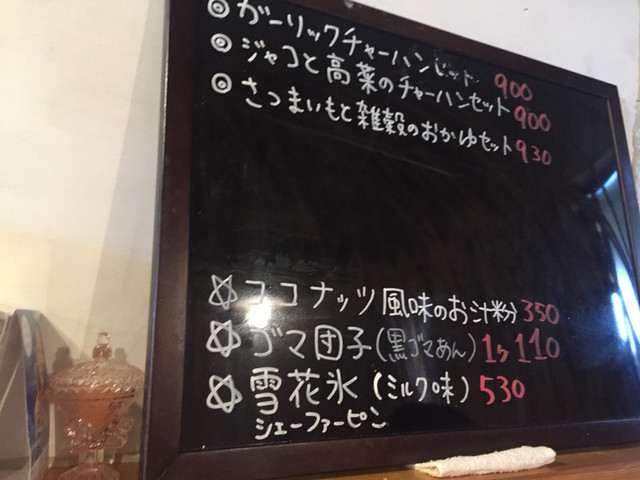 ◎ガーリックチャーハンセット 900
◎ジャコと高菜のチャーハンセット 900
◎さつまいもと雑穀のおかゆセット 930
☆ココナッツ風味のお汁粉 350
☆ゴマ団子(黒ゴマあん) 1ヶ110
☆雪花氷(ミルク味) 530
シェーファーピン